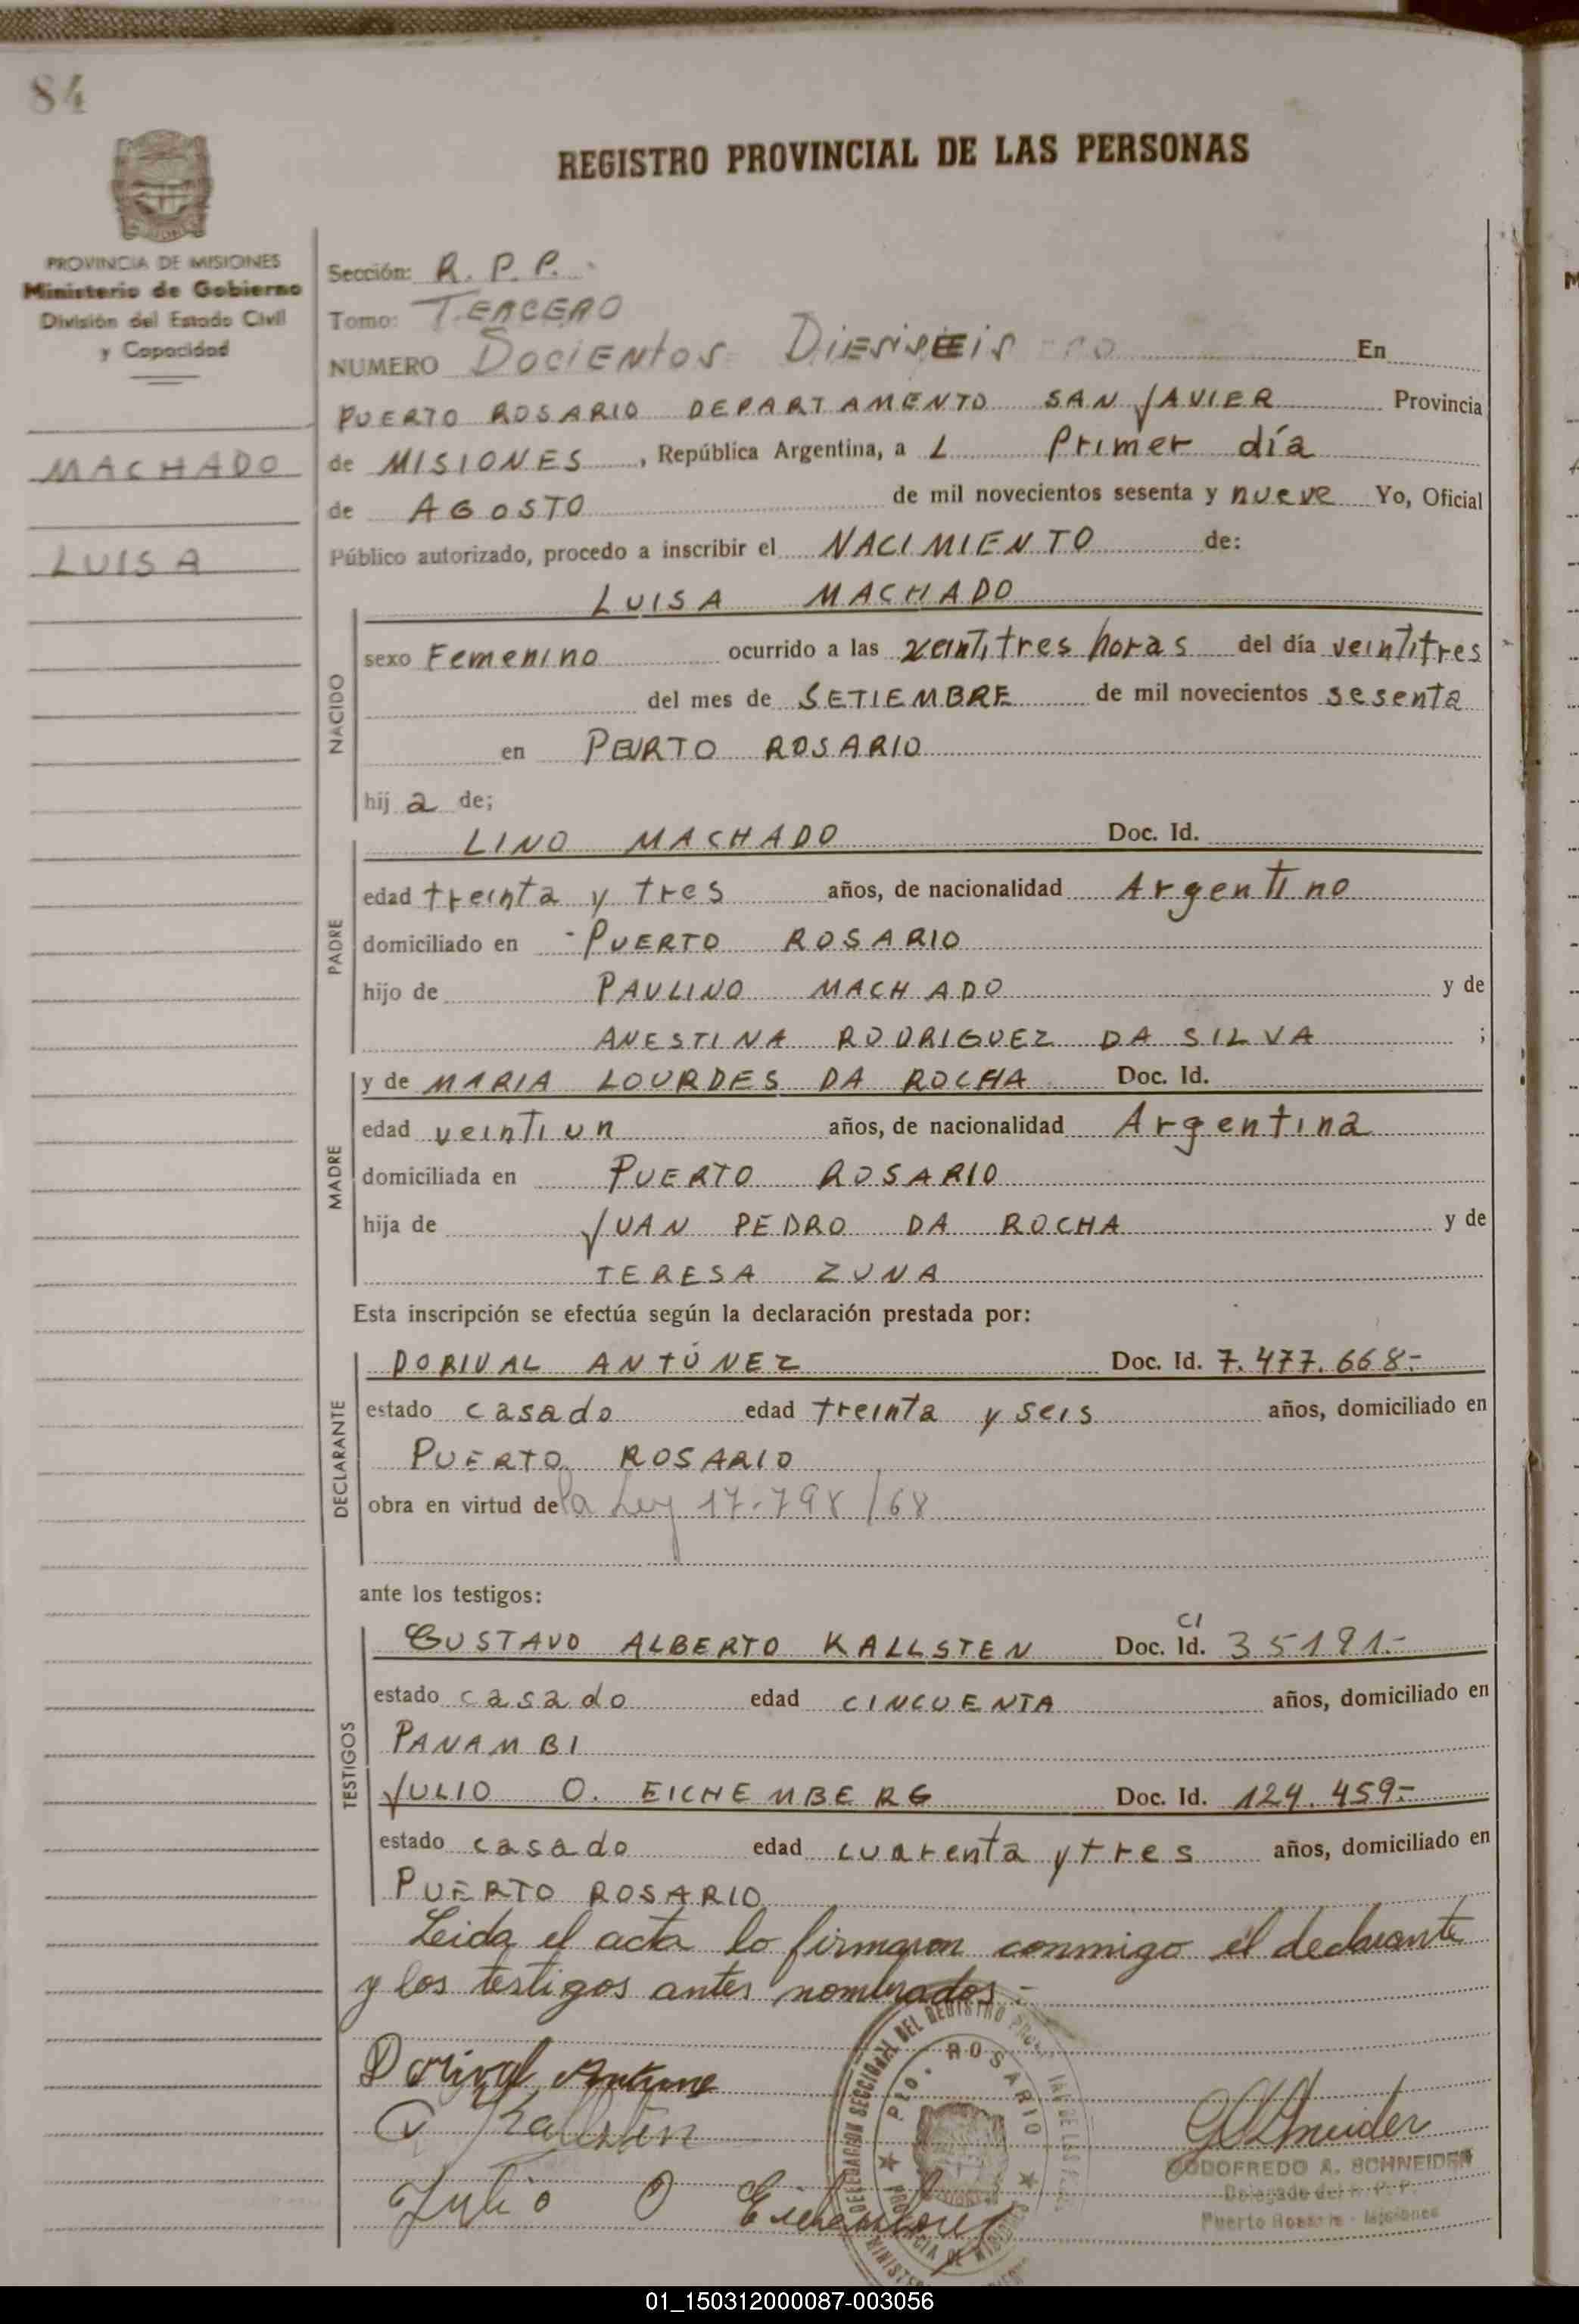 84
REGISTRO PROVINCIAL DE LAS PERSONAS
PROVINCIA DE MISIONES
Ministerio de Gobierno
División del Estado Civil
y Capacidad
MACHADO
LUISA
Sección: R. P. P.
Tomo: TERCERO
NUMERO DOCIENTOS DIESISEIS En
PUERTO ROSARIO DEPARTAMENTO SAN JAVIER Provincia
de MISIONES , República Argentina, a L Primer día
de AGOSTO de mil novecientos sesenta y nueve Yo, Oficial
Público autorizado, procedo a inscribir el NACIMIENTO de:
LUISA MACHADO
NACIDO
sexo Femenino ocurrido a las veintitres horas del día veintitres
del mes de SETIEMBRE de mil novecientos sesenta
en PEURTO ROSARIO
hij a de;
PADRE
LINO MACHADO Doc. Id.
edad treinta y tres años, de nacionalidad Argentino
domiciliado en -PUERTO ROSARIO
hijo de PAULINO MACHADO y de
ANESTINA RODRIGUEZ DA SILVA ;
MADRE
y de MARIA LOURDES DA ROCHA Doc. Id.
edad veintiun años, de nacionalidad Argentina
domiciliada en PUERTO ROSARIO
hija de JUAN PEDRO DA ROCHA y de
TERESA ZUNA
Esta inscripción se efectúa según la declaración prestada por:
DECLARANTE
DORIVAL ANTÚNEZ Doc. Id. 7.477.668.-
estado casado edad treinta y seis años, domiciliado en
PUERTO ROSARIO
obra en virtud de la Ley 17.798/68
ante los testigos:
TESTIGOS
CI
GUSTAVO ALBERTO KALLSTEN Doc. Id. 35191.-
estado casado edad CINCUENTA años, domiciliado en
PANAMBI
JULIO O. EICHEMBERG Doc. Id. 124.459.-
estado casado edad cuarenta y tres años, domiciliado en
PUERTO ROSARIO
Leida el acta lo firmaron conmigo el declarante
y los testigos antes nombrados.-
Dorival Antune
G Kallsten
Julio O Eichemberg
DELEGACION SECCIONAL DEL REGISTRO
PTO. ROSARIO
PROVINCIA DE MISIONES
GASchneider
GODOFREDO A. SCHNEIDER
Delegado del R. P. P.
Puerto Rosario - Misiones
01_150312000087-003056